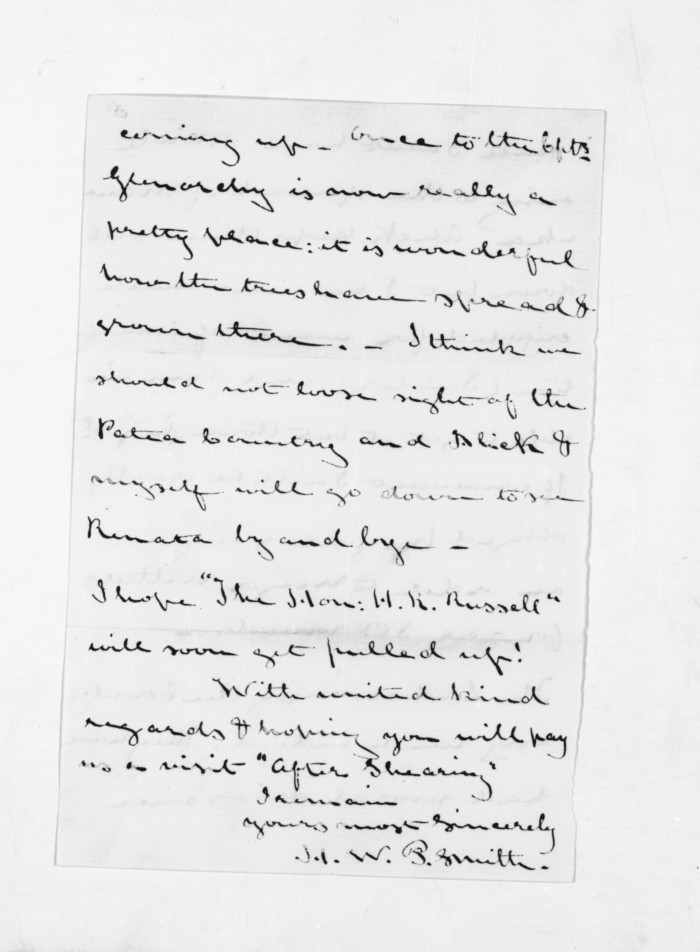 coming up - Once to the
Glenorchy is now really a
pretty place: it is wonderful
how the trees have spread &
grown there. - I think we
should not loose sight of the
Patea Country and Slick &
myself will go down to see
Renata by and bye -
I hope "The Hon: H. R. Russell"
will soon get pulled up!
With united kind
regards & hoping you will pay
us a visit "After Shearing"
I remain
yours most sincerely
W. P. Smith.